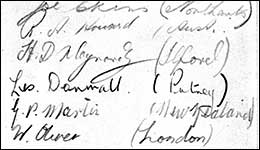 (Northants)
R. A. Howard (Aust.)
H. D. Maynard (Ilford)
Leo. Donmall (Putney)
G. P. Martin (New Zealand)
W. Oliver (London)